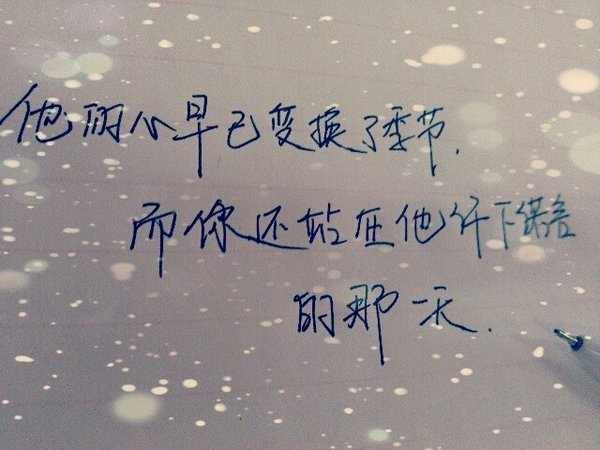 他的心早已变换了季节.
而你还站在他许下诺言
的那一天.